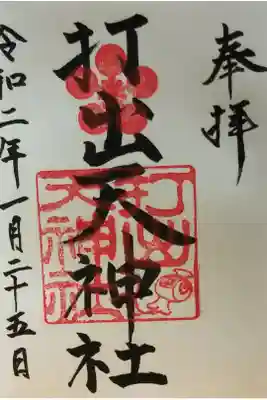 奉拝
打出天神社
打出
天神社
令和二年一月二十五日